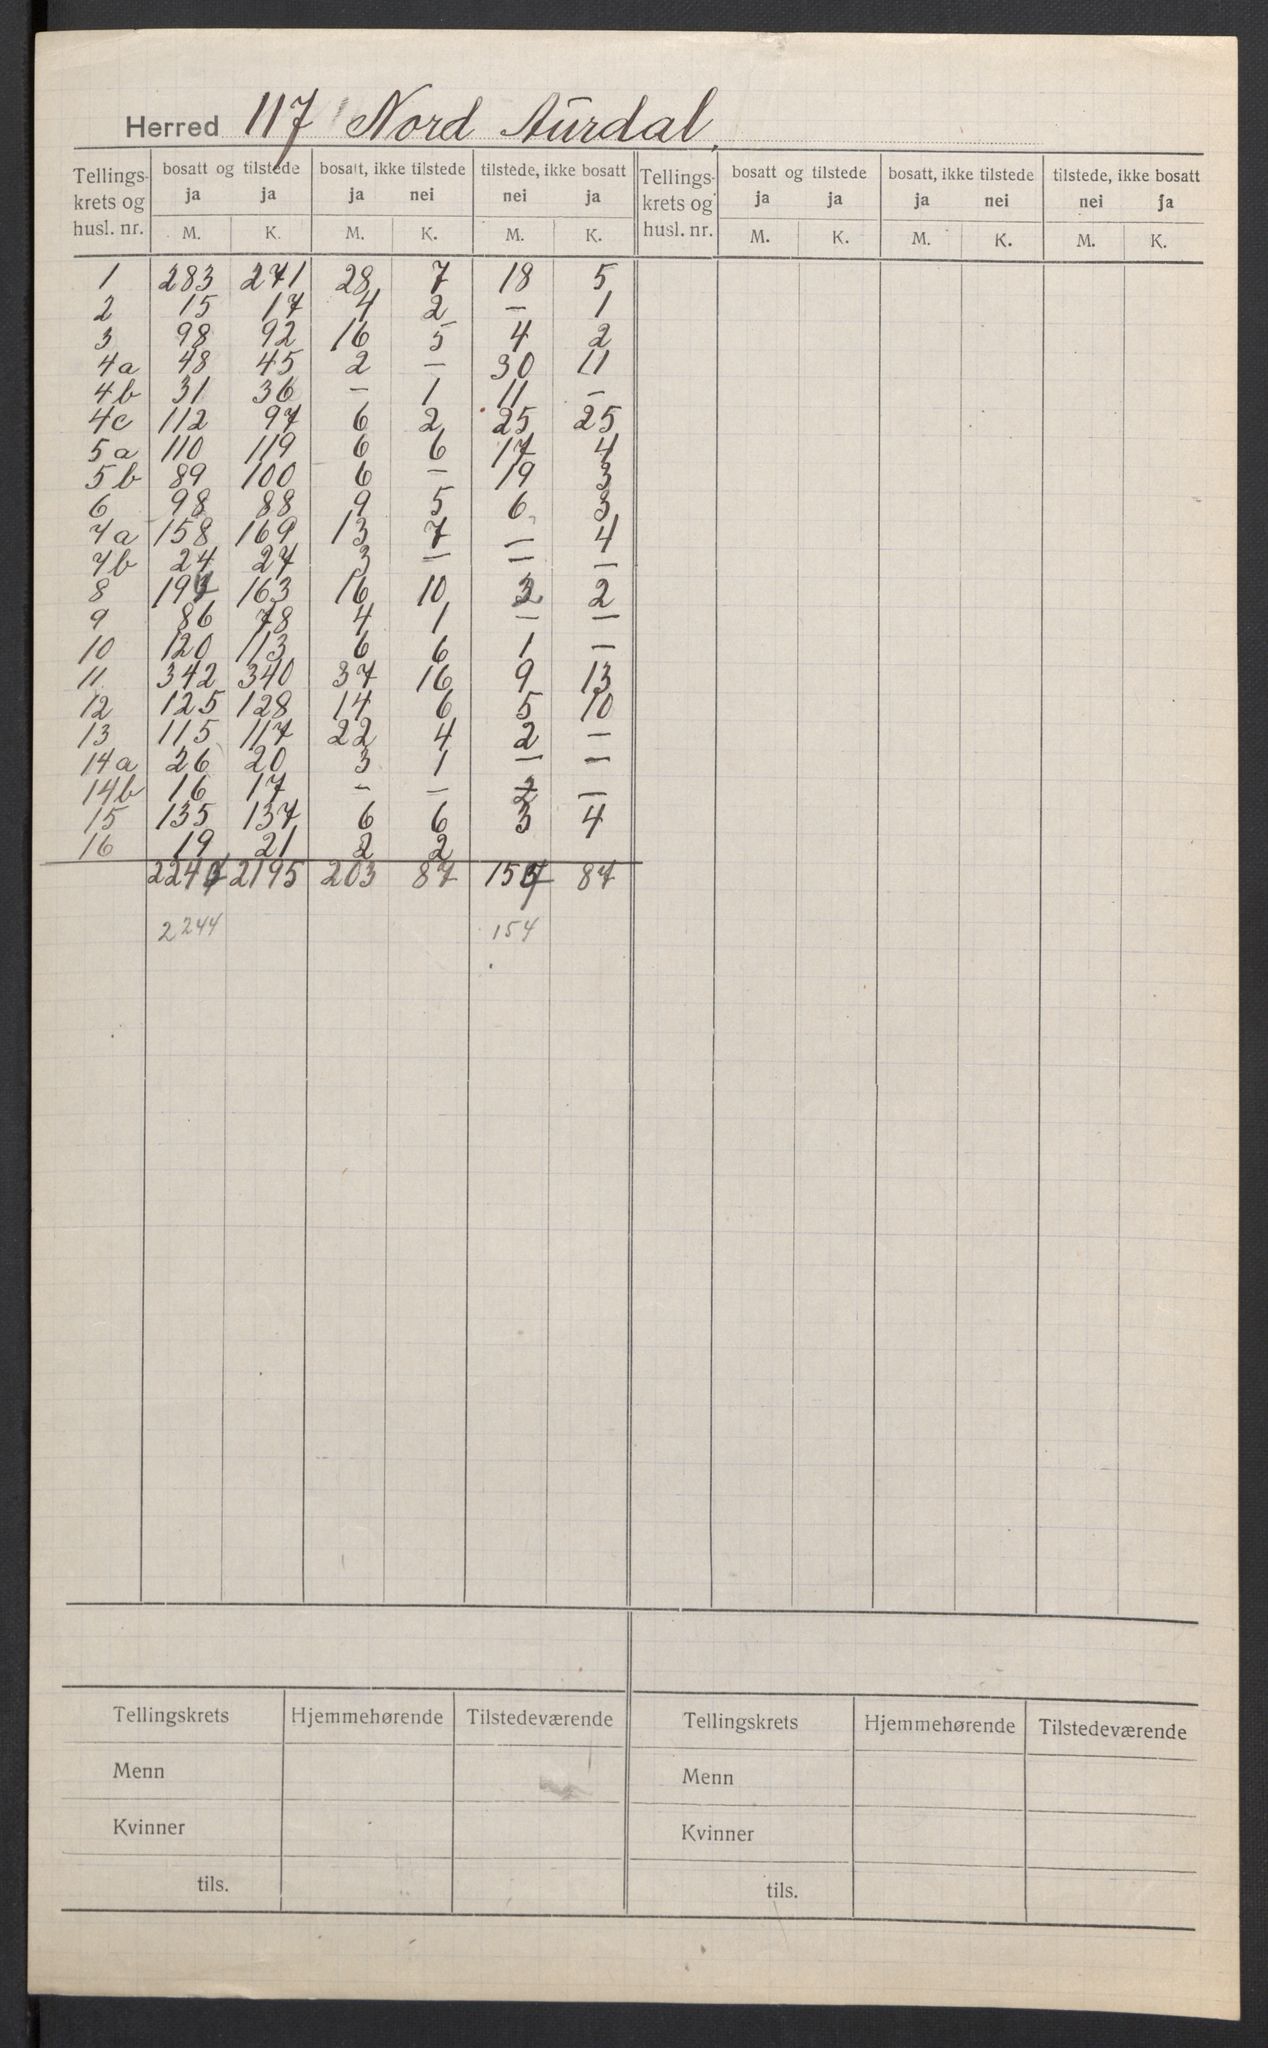 Herred 117 Nord Aurdal.
Tellings- krets og husl. nr. | bosatt og tilstede ja ja | bosatt, ikke tilstede ja nei | tilstede, ikke bosatt nei ja | Tellings- krets og husl. nr. | bosatt og tilstede ja ja | bosatt, ikke tilstede ja nei | tilstede, ikke bosatt nei ja
M. K. M. K. M. K. M. K. M. K. M. K.
1 283 271 28 7 18 5
2 15 17 4 2 — 1
3 98 92 16 5 4 2
4a 48 45 2 — 30 11
4b 31 36 — 1 11 —
4c 112 97 6 2 25 25
5a 110 119 6 6 17 4
5b 89 100 6 — 19 3
6 98 88 9 5 6 3
7a 158 169 13 7 — 4
7b 24 27 3 — — —
8 163 16 10 2
9 86 78 4 1 — —
10 120 113 6 6 1 —
11 342 340 37 16 9 13
12 125 128 14 6 5 10
13 115 117 22 4 2 —
14a 26 20 3 1 — —
14b 16 17 — — 2 —
15 135 137 6 6 3 4
16 19 21 2 2
2195 203 87 87
2244 154
Tellingskrets Hjemmehørende Tilstedeværende Tellingskrets Hjemmehørende Tilstedeværende
Menn Menn
Kvinner Kvinner
tils. tils.